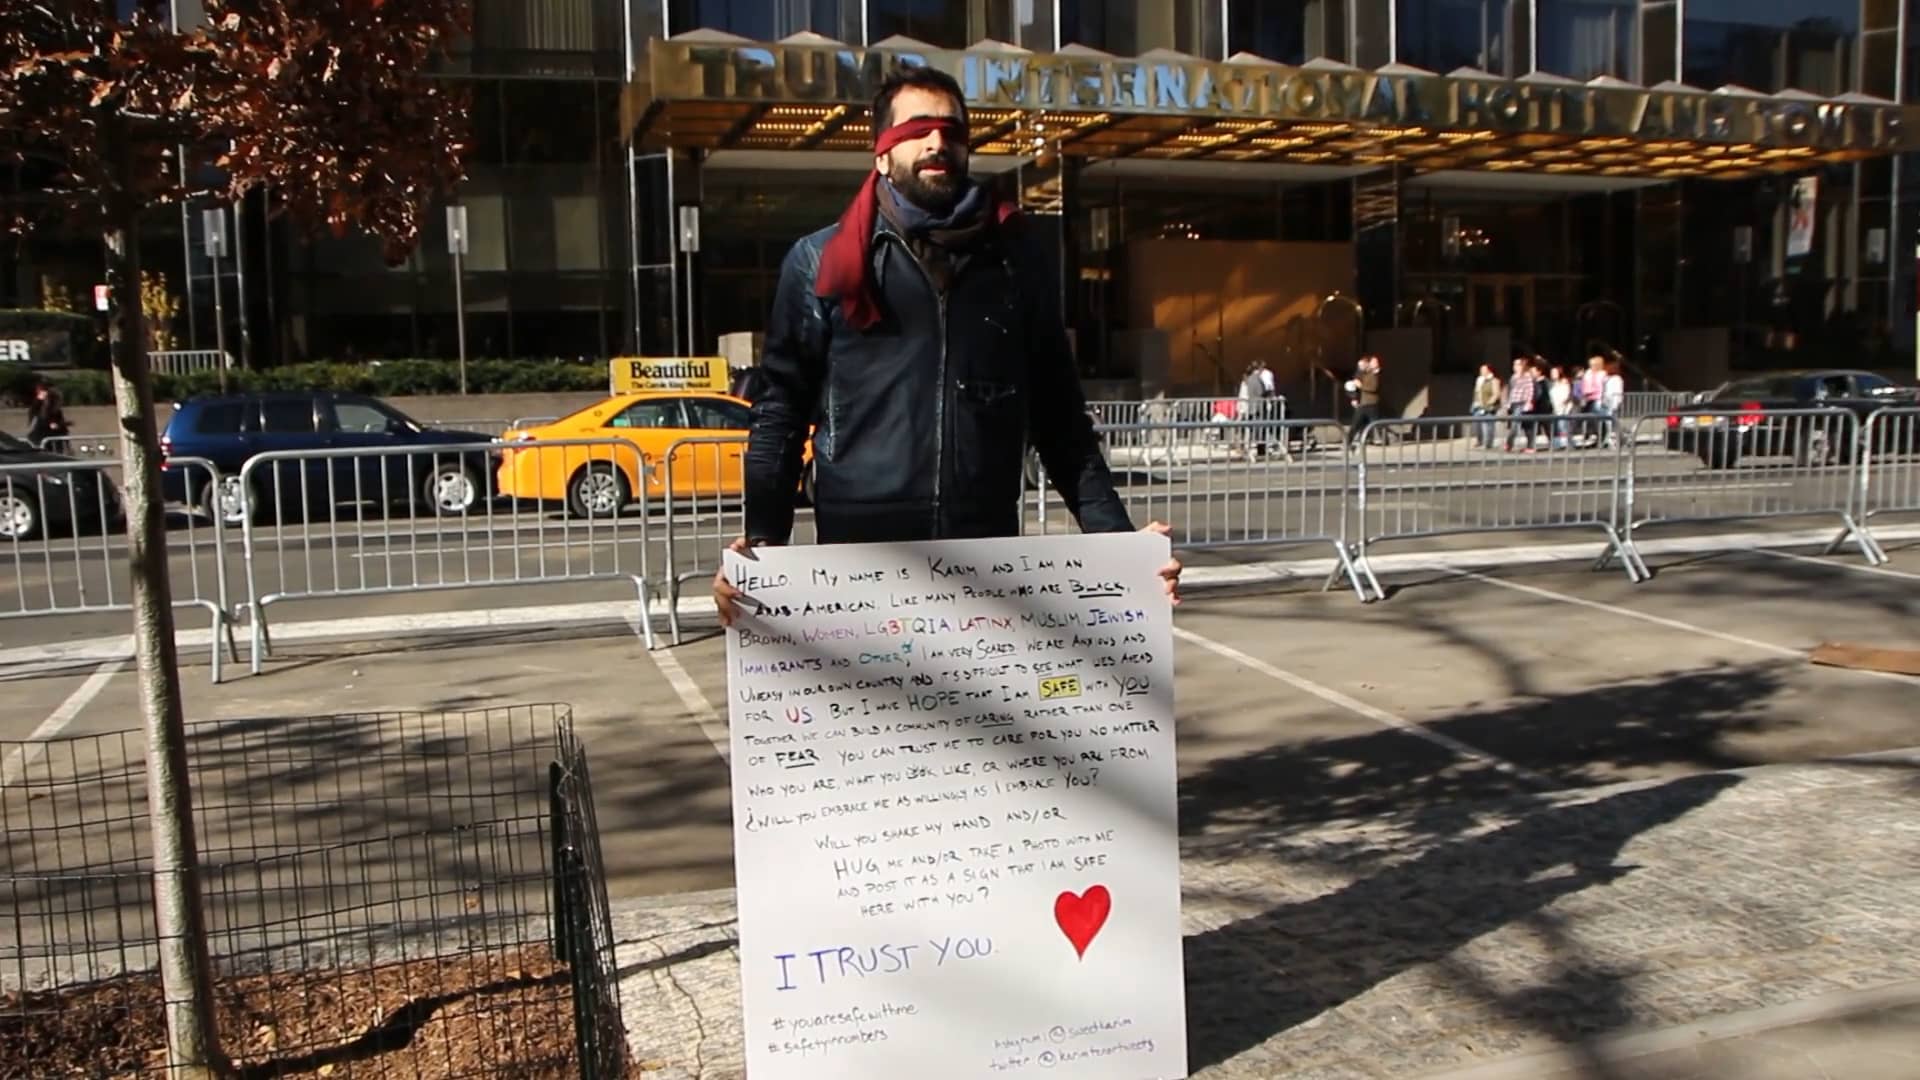 TRUMP INTERNATIONAL HOTEL AND TOWER
ER
Beautiful
The Carole King Musical
HELLO. MY NAME IS KARIM AND I AM AN
ARAB-AMERICAN. LIKE MANY PEOPLE WHO ARE BLACK,
BROWN, WOMEN, LGBTQIA, LATINX, MUSLIM, JEWISH,
IMMIGRANTS AND OTHERS, I AM VERY SCARED. WE ARE ANXIOUS AND
UNEASY IN OUR OWN COUNTRY AND IT'S DIFFICULT TO SEE WHAT LIES AHEAD
FOR US. BUT I HAVE HOPE THAT I AM SAFE WITH YOU.
TOGETHER WE CAN BUILD A COMMUNITY OF CARING RATHER THAN ONE
OF FEAR. YOU CAN TRUST ME TO CARE FOR YOU NO MATTER
WHO YOU ARE, WHAT YOU LOOK LIKE, OR WHERE YOU ARE FROM.
¿WILL YOU EMBRACE ME AS WILLINGLY AS I EMBRACE YOU?
WILL YOU SHAKE MY HAND AND/OR
HUG ME AND/OR TAKE A PHOTO WITH ME
AND POST IT AS A SIGN THAT I AM SAFE
HERE WITH YOU?
I TRUST YOU.
#youaresafewithme
#safetyinnumbers
instagram: @sweetkarim
twitter: @karimtenortweets